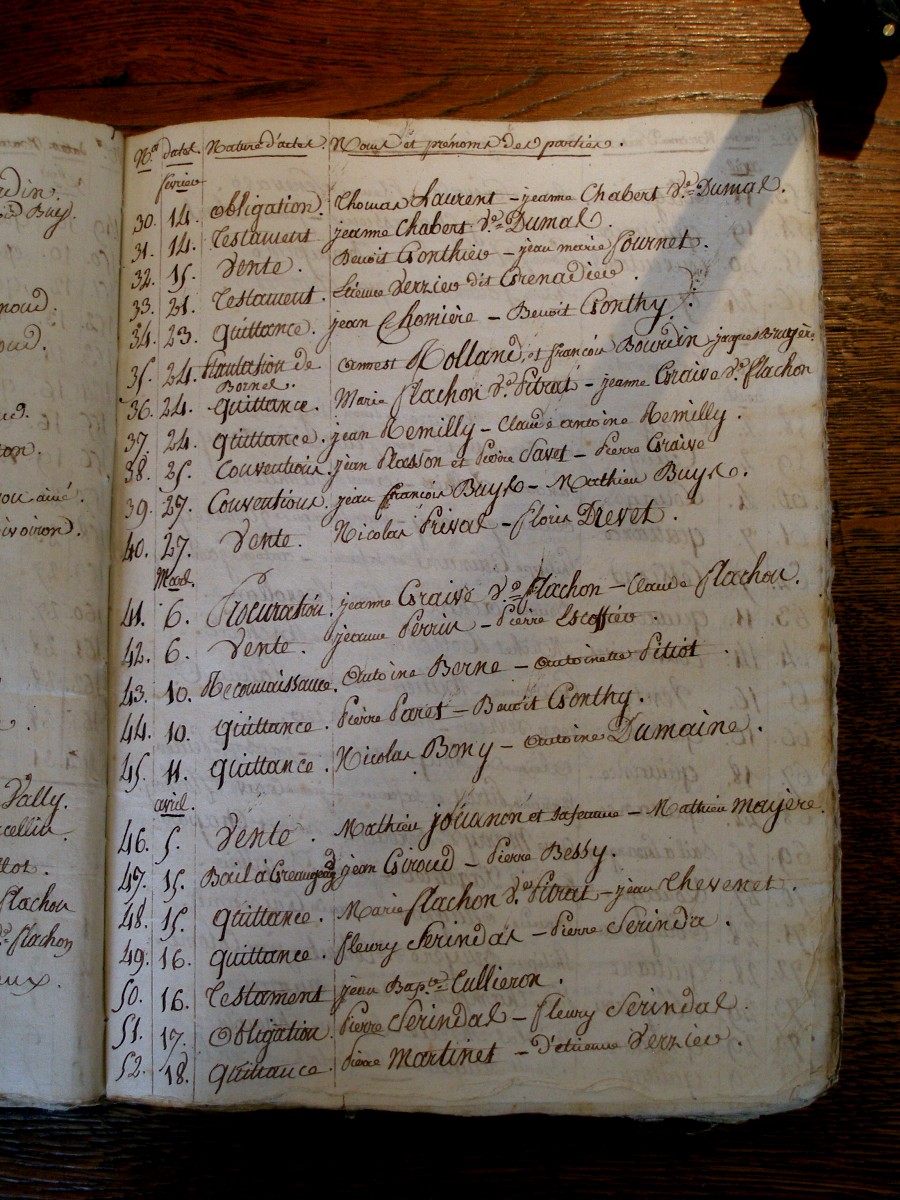 din.
Buy.
noud.
oud.
ton.
ou ainé.
ivoiron.
Vally.
cellin.
ttot.
flachon
flachon
eux.
N.os dates Nature d'actes. Noms et prénoms des parties.
février
30. 14. obligation. thomas Laurent - jeanne Chabert v.e Dumal.
31. 14. Testament jeanne Chabert v.e Dumal.
32. 15. Vente. Benoit Gonthier - jean marie fournet.
33. 21. Testament. Etienne Verzier dit Grenadier.
34. 23. quittance. jean Chomière - Benoit Gonthy.
35. 24. Plantation de Bornes. ennest Rolland, et françois Bourdin - jaques Bruyère
36. 24. quittance. Marie flachon v.e Pitrat - jeanne Graive v.e flachon
37. 24. quittance. jean Remilly - Claude antoine Remilly.
38. 25. Conventions. jean Plasson et Pierre Savet - Pierre Graive
39. 27. Conventions. jean françois Buys - Mathieu Buys.
40. 27. Vente. Nicolas Prival - floris Drevet.
Mars.
41. 6. Procuration. jeanne Graive v.e flachon - Claude flachon.
42. 6. Vente. jeanne Perrin - Pierre Escoffier.
43. 10. Reconnaissance. antoine Berne - antoinette Pitiot.
44. 10. quittance. Pierre Paret - Benoit Gonthy.
45. 11. quittance. Nicolas Bony - antoine Dumaine.
avril.
46. 5. Vente. Mathieu jouanon et sa femme - Mathieu mayère.
47. 15. Bail à jean Giroud - Pierre Bessy.
48. 15. quittance. Marie flachon v.e Pitrat - jean Chevenet.
49. 16. quittance. fleury Serindat - Pierre Serinda.
50. 16. Testament jean Bap.te Cullieron.
51. 17. Obligation. Pierre Serindal - fleury Serindal.
52. 18. quittance. Pierre Martinet - D'etienne Verzier.